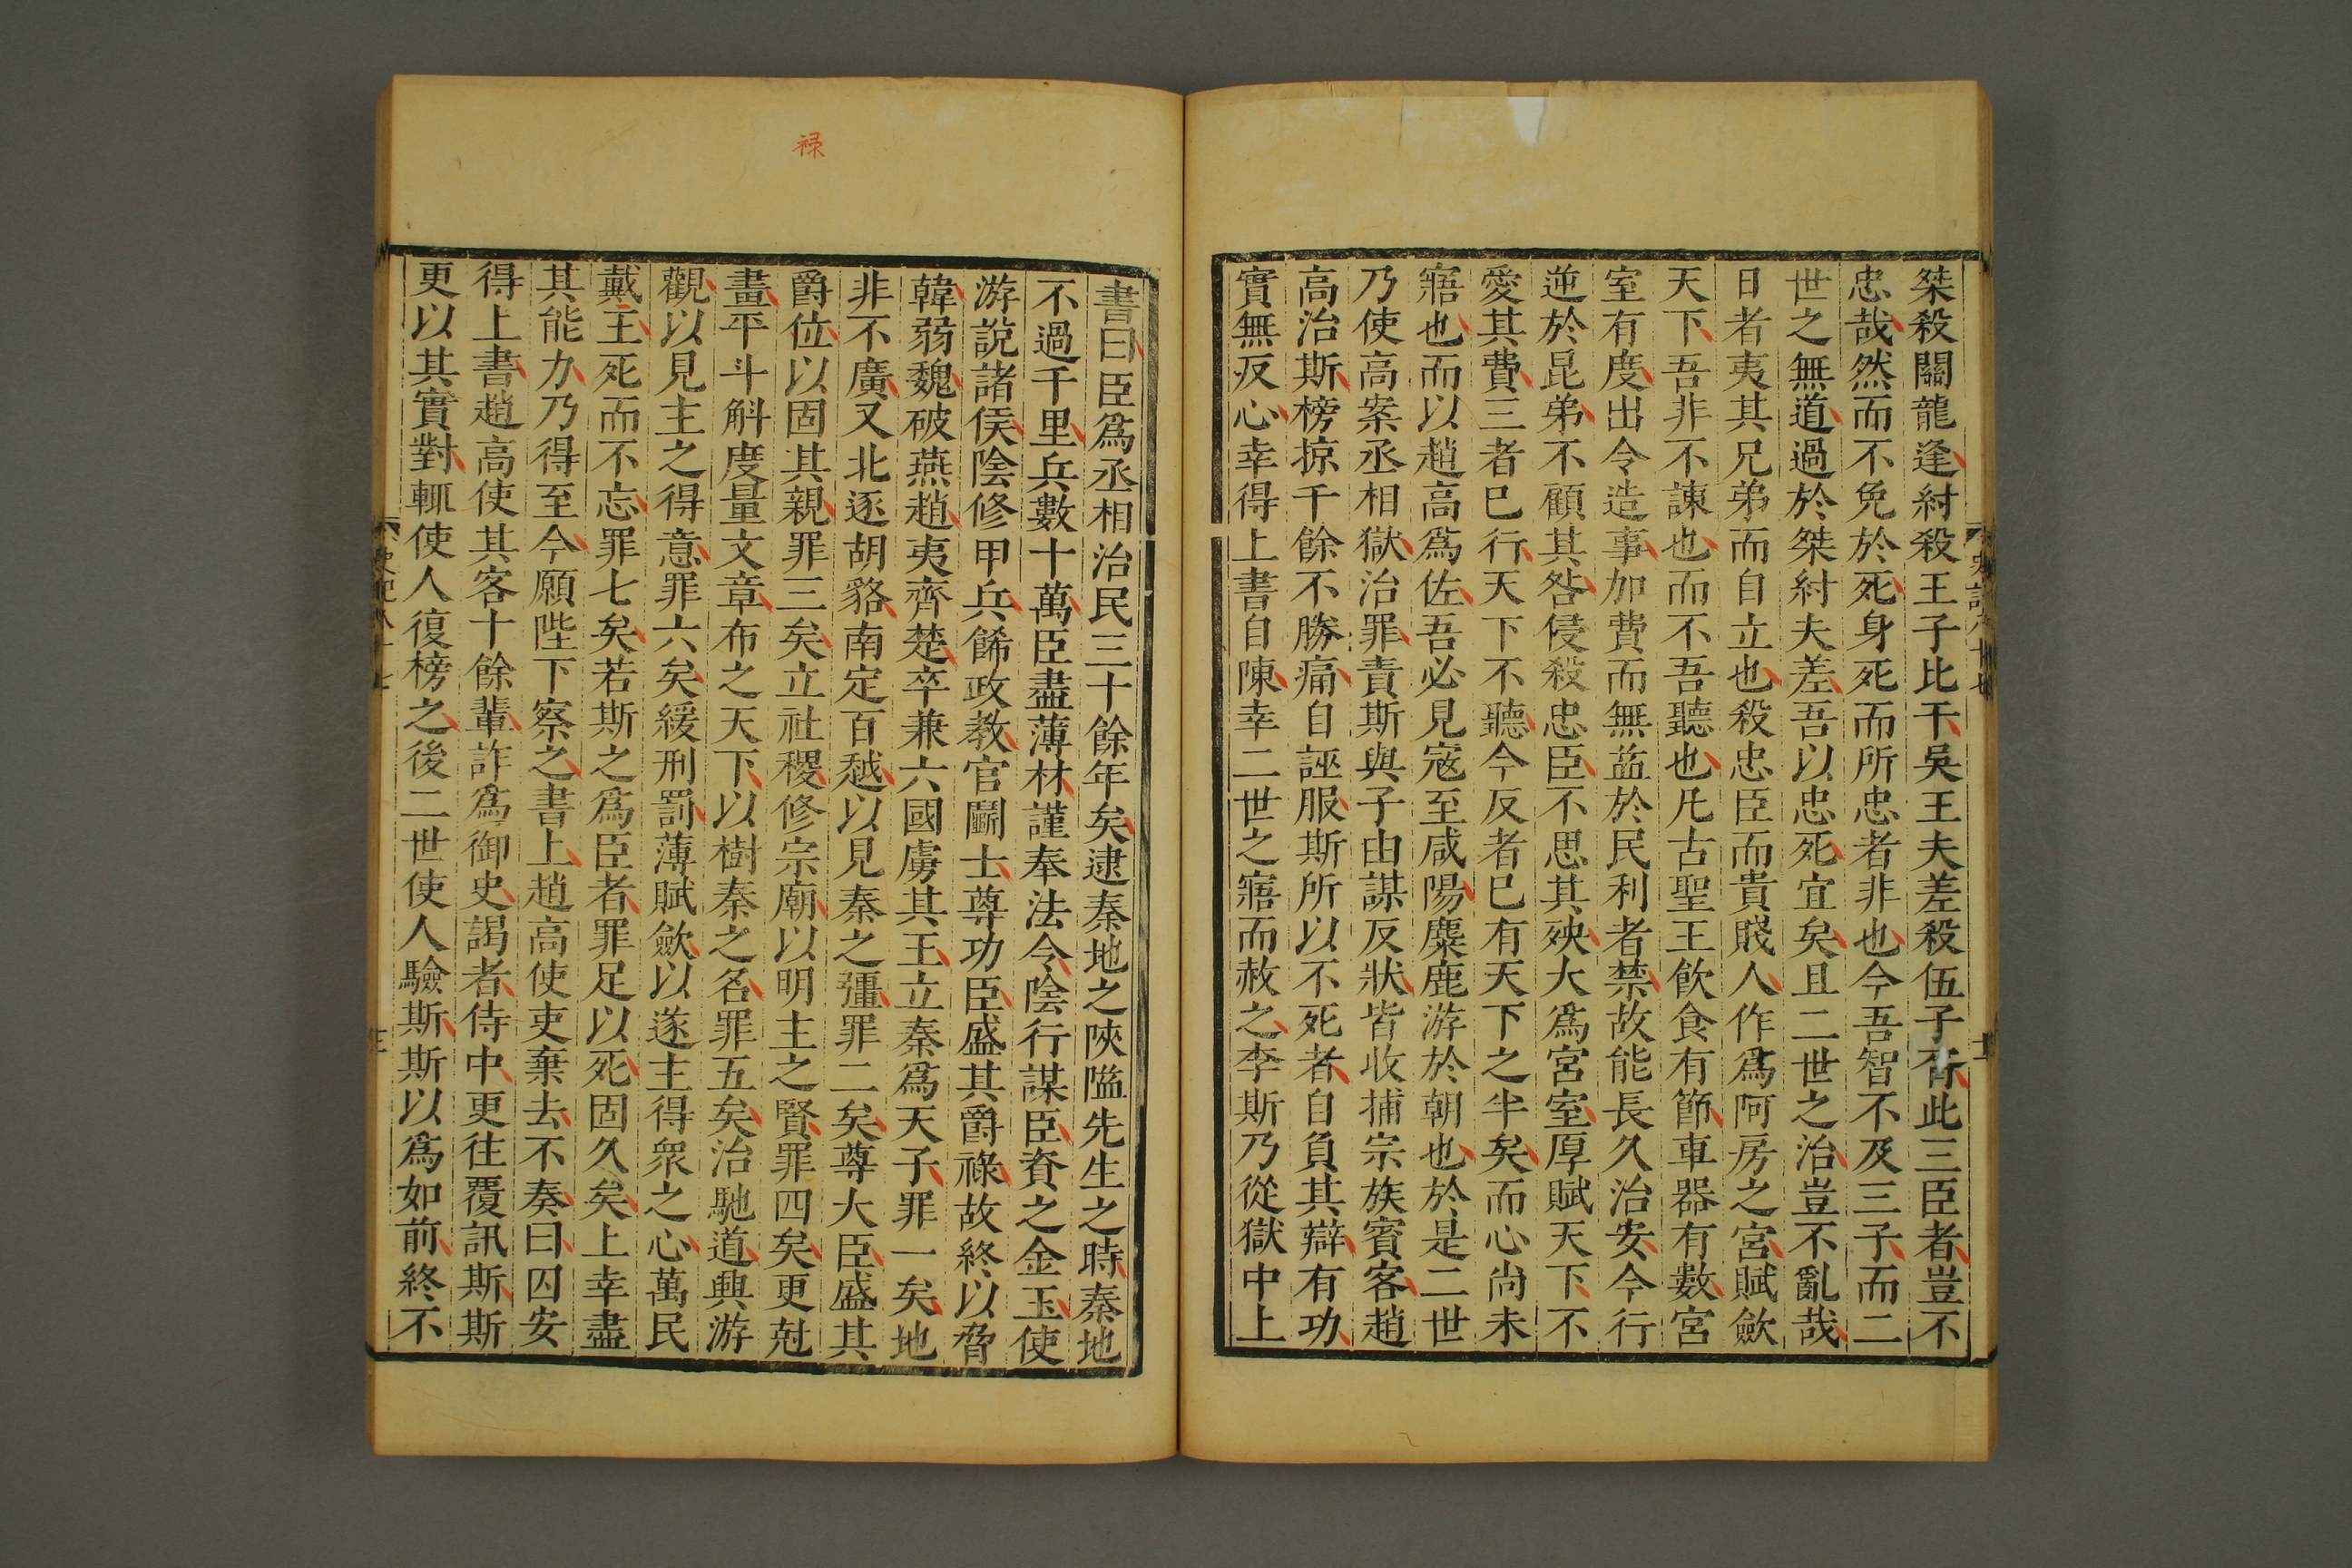 桀殺關龍逢紂殺王子比干吳王夫差殺伍子胥此三臣者豈不
忠哉然而不免於死身死而所忠者非也今吾智不及三子而二
世之無道過於桀紂夫差吾以忠死宜矣且二世之治豈不亂哉
日者夷其兄弟而自立也殺忠臣而貴賤人作爲阿房之宮賦斂
天下吾非不諫也而不吾聽也凡古聖王飲食有節車器有數宮
室有度出令造事加費而無益於民利者禁故能長久治安今行
逆於昆弟不顧其咎侵殺忠臣不思其殃大爲宮室厚賦天下不
愛其費三者已行天下不聽今反者已有天下之半矣而心尚未
寤也而以趙高爲佐吾必見寇至咸陽麋鹿游於朝也於是二世
乃使高案丞相獄治罪責斯與子由謀反狀皆收捕宗族賓客趙
高治斯榜掠千餘不勝痛自誣服斯所以不死者自負其辯有功
實無反心幸得上書自陳幸二世之寤而赦之李斯乃從獄中上
史記八十七
書曰臣爲丞相治民三十餘年矣逮秦地之陝隘先生之時秦地
不過千里兵數十萬臣盡薄材謹奉法令陰行謀臣資之金玉使
游說諸侯陰修甲兵餙政教官鬭士尊功臣盛其爵祿故終以脅
韓弱魏破燕趙夷齊楚卒兼六國虜其王立秦爲天子罪一矣地
非不廣又北逐胡貉南定百越以見秦之彊罪二矣尊大臣盛其
爵位以固其親罪三矣立社稷修宗廟以明主之賢罪四矣更尅
畫平斗斛度量文章布之天下以樹秦之名罪五矣治馳道興游
觀以見主之得意罪六矣緩刑罰薄賦斂以遂主得衆之心萬民
戴王死而不忘罪七矣若斯之爲臣者罪足以死固久矣上幸盡
其能力乃得至今願陛下察之書上趙高使吏棄去不奏曰囚安
得上書趙高使其客十餘輩詐爲御史謁者侍中更往覆訊斯斯
更以其實對輒使人復榜之後二世使人驗斯斯以爲如前終不
禄